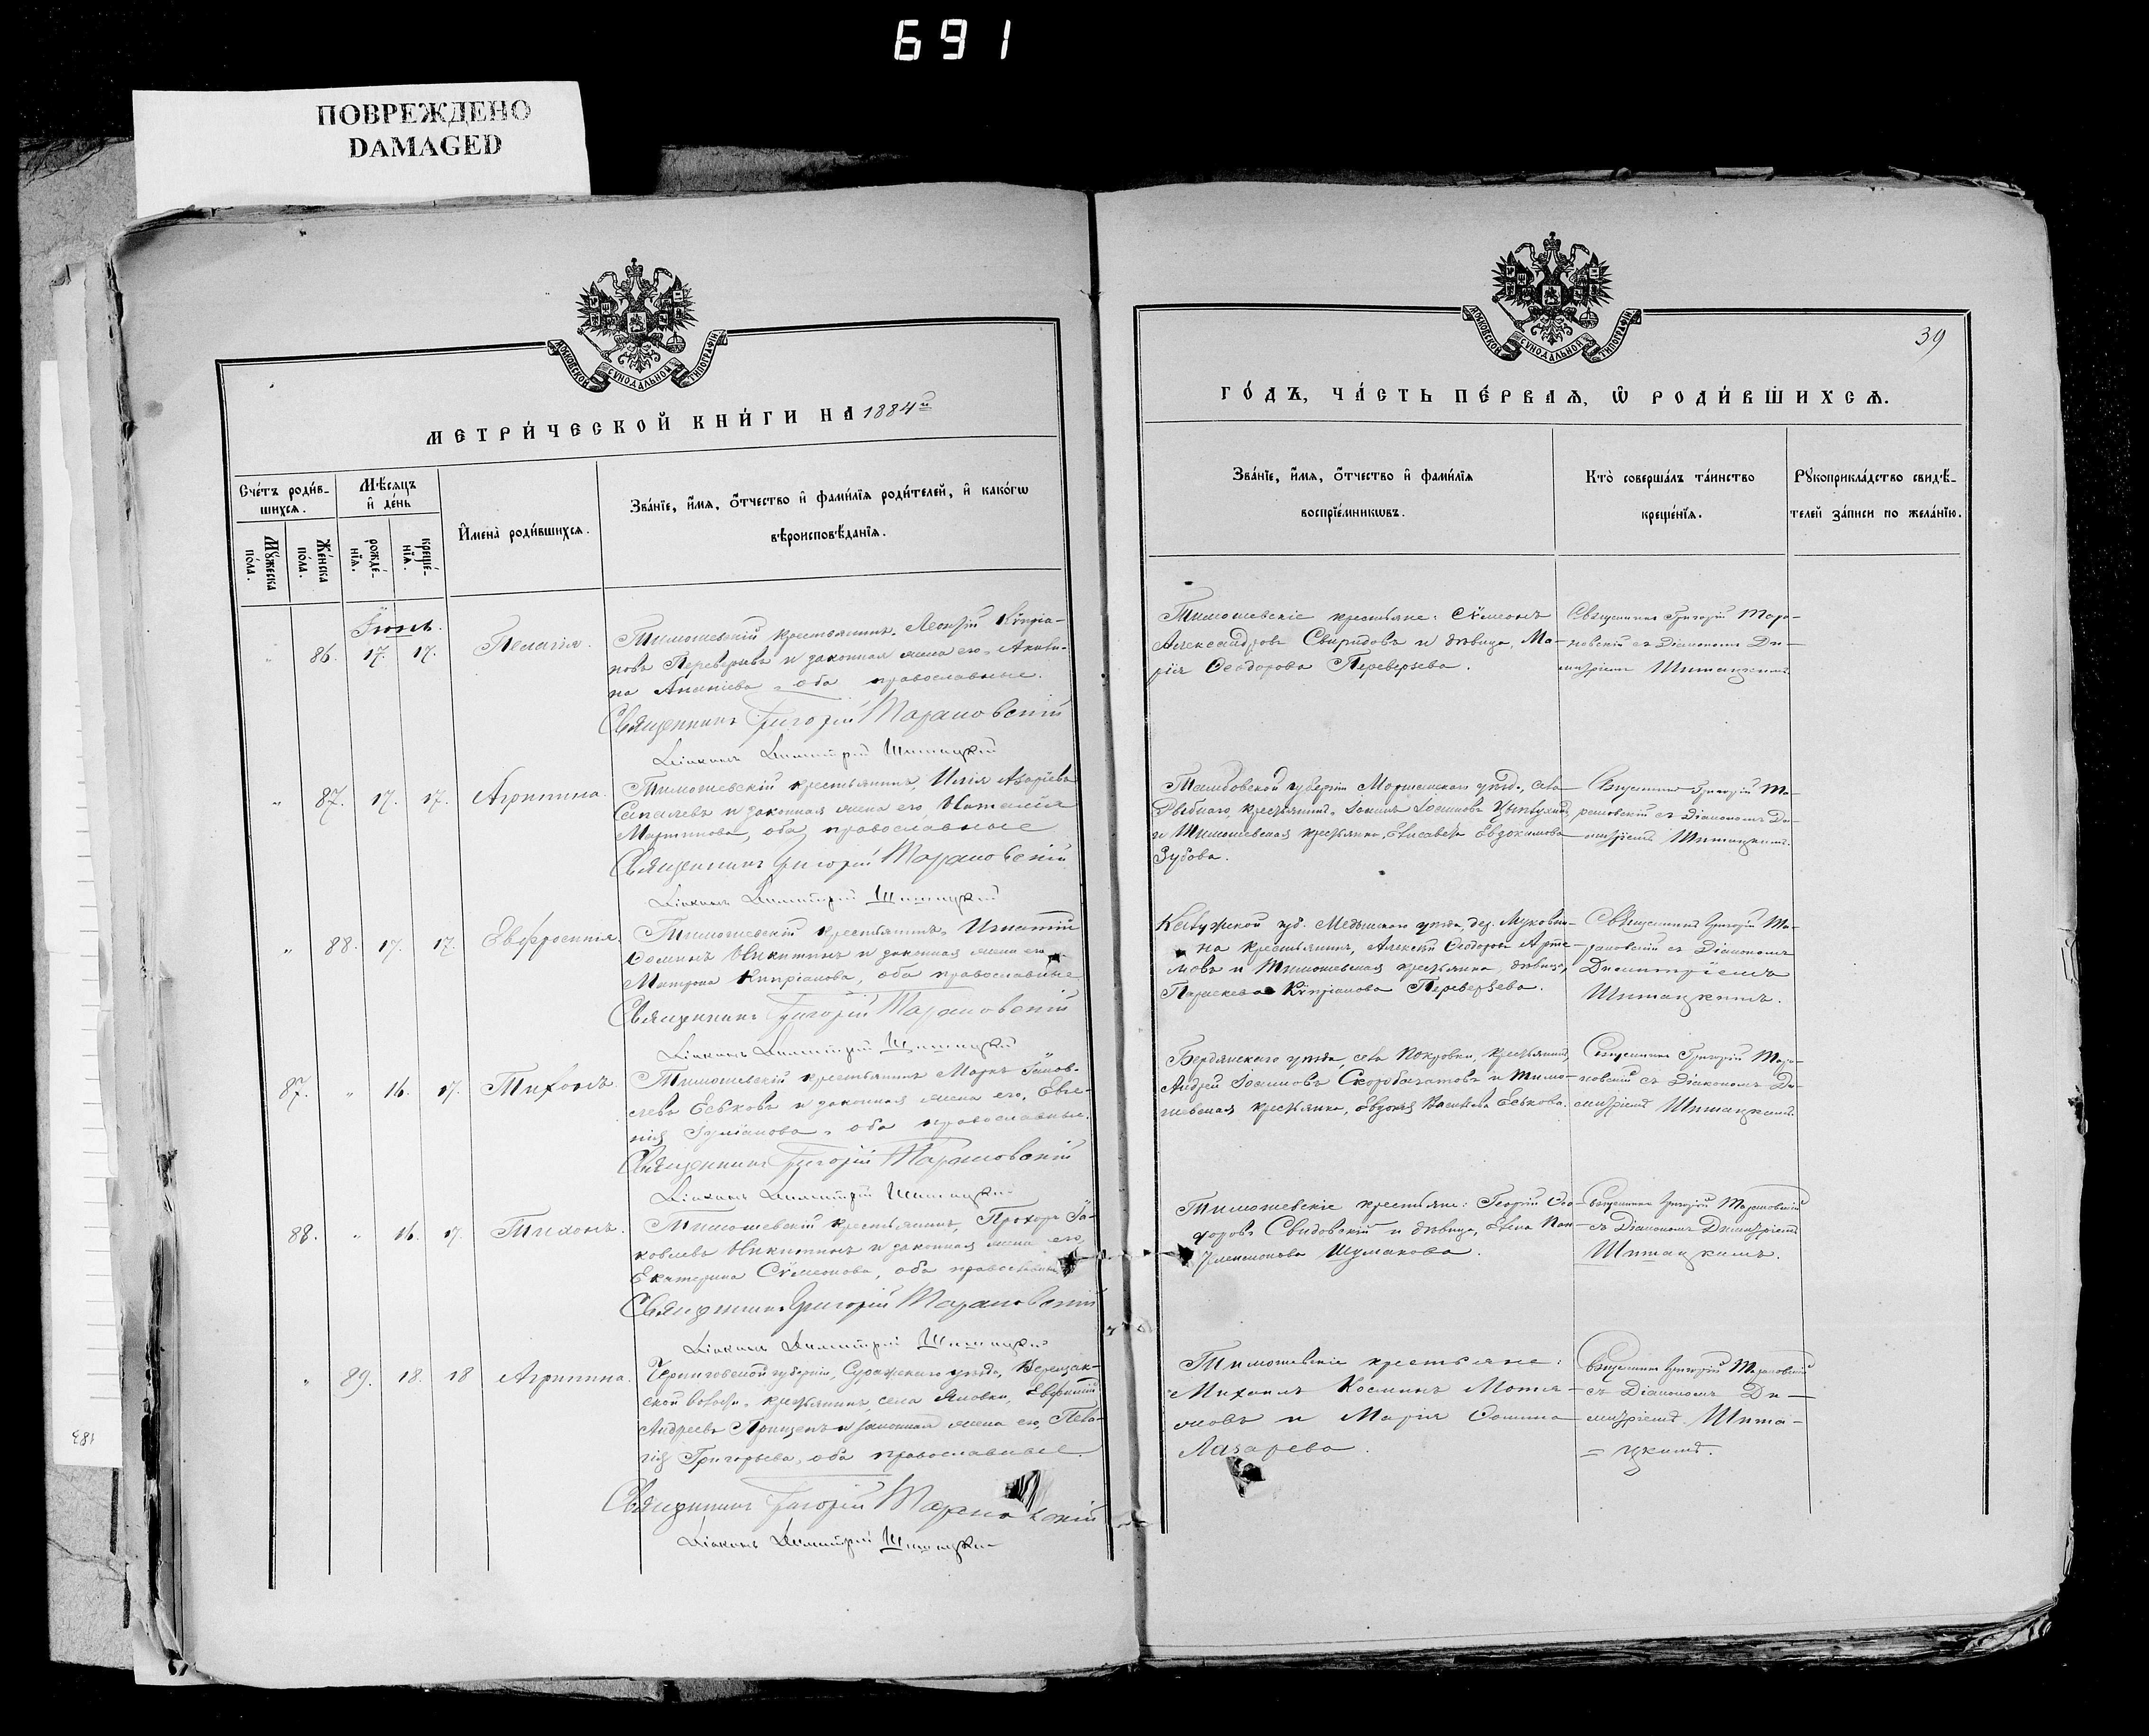 691
ПОВРЕЖДЕНО
DAMAGED
МОСКОВСКОЙ СѴНОДАЛЬНОЙ ТИПОГРАФІИ
МЕТРИ́ЧЕСКОЙ КНИ́ГИ НА 1884й
Сче́тъ роди́в-
шихсѧ.
Мѣ́сяцъ
и҆ де́нь
Мꙋ́жеска
по́ла.
Же́нска
по́ла.
рожде́-
нїѧ.
креще́-
нїѧ.
И҆мена̀ роди́вшихсѧ.
Зва́нїе, и҆́мѧ, ѻ҆́тчество и҆ фами́лїѧ роди́телей, и҆ како́гѡ
вѣроисповѣ́данїѧ.
Іюнь.
„ 86. 17. 17. Пелагія.
Тимошевскій крестьянинъ, Леонтій Кѵпріа-
новъ Переверзевъ и законная жена его Акили-
на Ананіева, оба православные.
Священникъ Григорій Тарановскій
Діаконъ Димитрій Шитацкій
„ 87. 17. 17. Агрипина.
Тимошевскій крестьянинъ, Илія Азаріевъ
и законная жена его Наталія
Мартинова, оба православные
Священникъ Григорій Тарановскій
Діаконъ Димитрій Шитацкій
„ 88. 17. 17. Евфросинія.
Тимошевскій крестьянинъ Игнатій
Ѳоминъ Никитинъ и законная жена его
Матрона Кипріанова, оба православные
Священникъ Григорій Тарановскій
Діаконъ Димитрій Шитацкій
87. „ 16. 17. Тихонъ.
Тимошевскій крестьянинъ Маркъ Іаков-
левъ Еськовъ и законная жена его, Евге-
нія Іуліанова, оба православные.
Священникъ Григорій Тарановскій
Діаконъ Димитрій Шитацкій
88. „ 16. 17. Тихонъ.
Тимошевскій крестьянинъ, Прохоръ Іа-
ковлевъ Никитинъ и законная жена его,
Екатерина Сѵмеонова, оба православные
Священникъ Григорій Тарановскій
Діаконъ Димитрій Шитацкій
„ 89. 18. 18 Агрипина.
Черниговской губерніи, Суражскаго уѣзда,
ской волости, крестьянинъ, села Яловки, Евѳимій
Андреевъ и законная жена его, Пела-
гія Григорьева, оба православные.
Священникъ Григорій Тарановскій
Діаконъ Димитрій Шитацкій
МОСКОВСКОЙ СѴНОДАЛЬНОЙ ТИПОГРАФІИ
39
ГО́ДЪ, ЧА́СТЬ ПЕ́РВАѦ, Ѡ҆ РОДИ́ВШИХСѦ.
Зва́нїе, и҆́мѧ, ѻ҆́тчество и҆ фами́лїѧ
воспрїе́мникѡвъ.
Кто̀ соверша́лъ та́инство
креще́нїѧ.
Рꙋкоприкла́дство свидѣ́-
телей за́писи по жела́нїю.
Тимошевскіе крестьяне: Сѵмеонъ
Александровъ Свиридовъ и дѣвица, Ма-
рія Ѳеодорова Переверзева.
Священникъ Григорій Тара-
новскій съ Діакономъ Ди-
митріемъ Шитацкимъ.
Тамбовской губерніи Моршанскаго уѣзда, села
крестьянинъ, Іоаннъ Іоанновъ
и Тимошевская крестьянка, Елисавета Евдокимова
Зубова.
Священникъ Григорій Та-
рановскій съ Діакономъ Ди-
митріемъ Шитацкимъ.
Калужской губ. Медынскаго уѣзда, дер.
на крестьянинъ, Алексѣй Ѳеодоровъ Арте-
мовъ и Тимошевская крестьянка, дѣвица,
Параскева Кѵпріанова Переверзева.
Священникъ Григорій Та-
рановскій съ Діакономъ
Димитріемъ
Шитацкимъ.
Бердянскаго уѣзда, села Покровки, крестьянинъ,
Андрей Іоанновъ Скоробагатовъ и Тимо-
шевская крестьянка, Евдокія Васильева Еськова.
Священникъ Григорій Тара-
новскій съ Діакономъ Ди-
митріемъ Шитацкимъ.
Тимошевскіе крестьяне: Георгій Ѳео-
доровъ Свидовскій и дѣвица, Елена Пан-
телеимонова Шумакова.
Священникъ Григорій Тарановскій
съ Діакономъ Димитріемъ
Шитацкимъ.
Тимошевскіе крестьяне:
Михаилъ Косминъ
и Марія Ѳомина
Лазарева.
Священникъ Григорій Тарановскій
съ Діакономъ Ди-
митріемъ Шита-
= цкимъ.
183